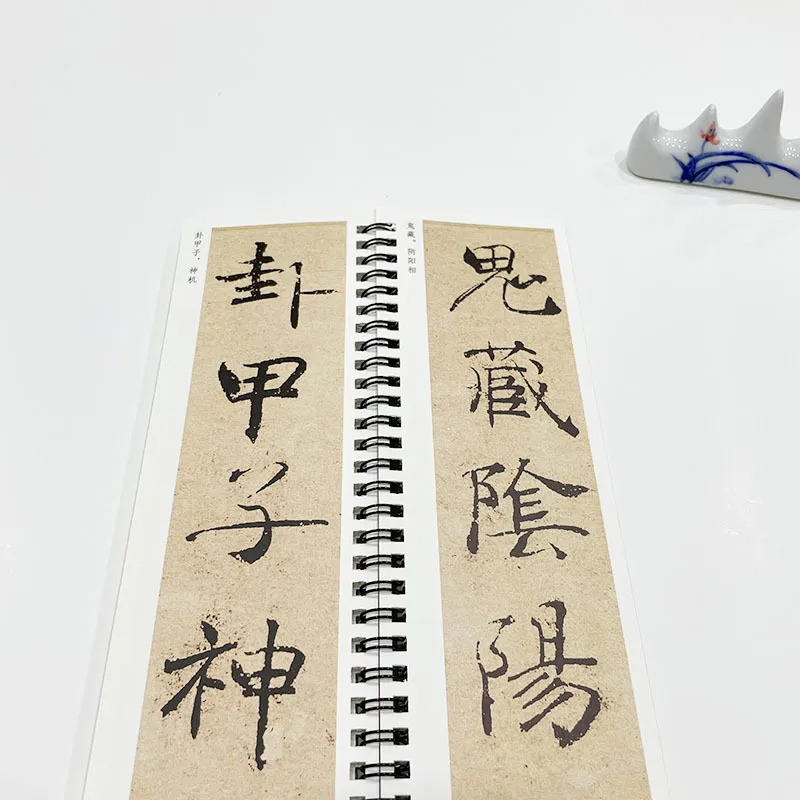 卦甲子，神机
卦甲子神
鬼藏。阴阳相
鬼藏陰陽